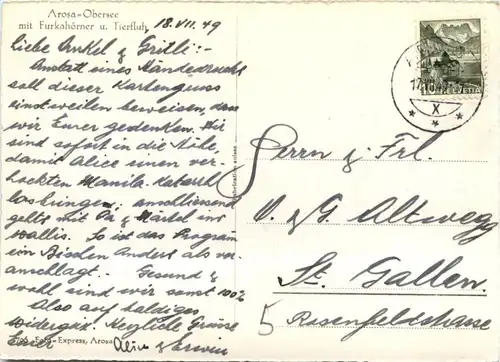 Arosa-Obersee
mit Furkahörner u. Tierfluh, 18.VII.49
Liebe Onkel & Gritli:-
Anstatt eines Händedrucks
soll dieser Kartengruss
einstweilen beweisen, dass
wir Eurer gedenken. Wir
sind sofort in die Höhe,
damit Alice einen ver-
hockten Manila-Katarrh
losbringen, anschliessend
geht's mit Pa & in
Wallis. So ist das Program
ein Bisschen Anders als ver-
anschlagt. Gesund &
wohl sind wir samt 100%
Also auf baldiges
widersehn. Herzliche Grüsse
Foto-Express, Arosa
Euer Alice & Erwin
HELVETIA
X
Herrn & Frl.
O. & G. Altwegg
St. Gallen
5 Rosenfeldstrasse